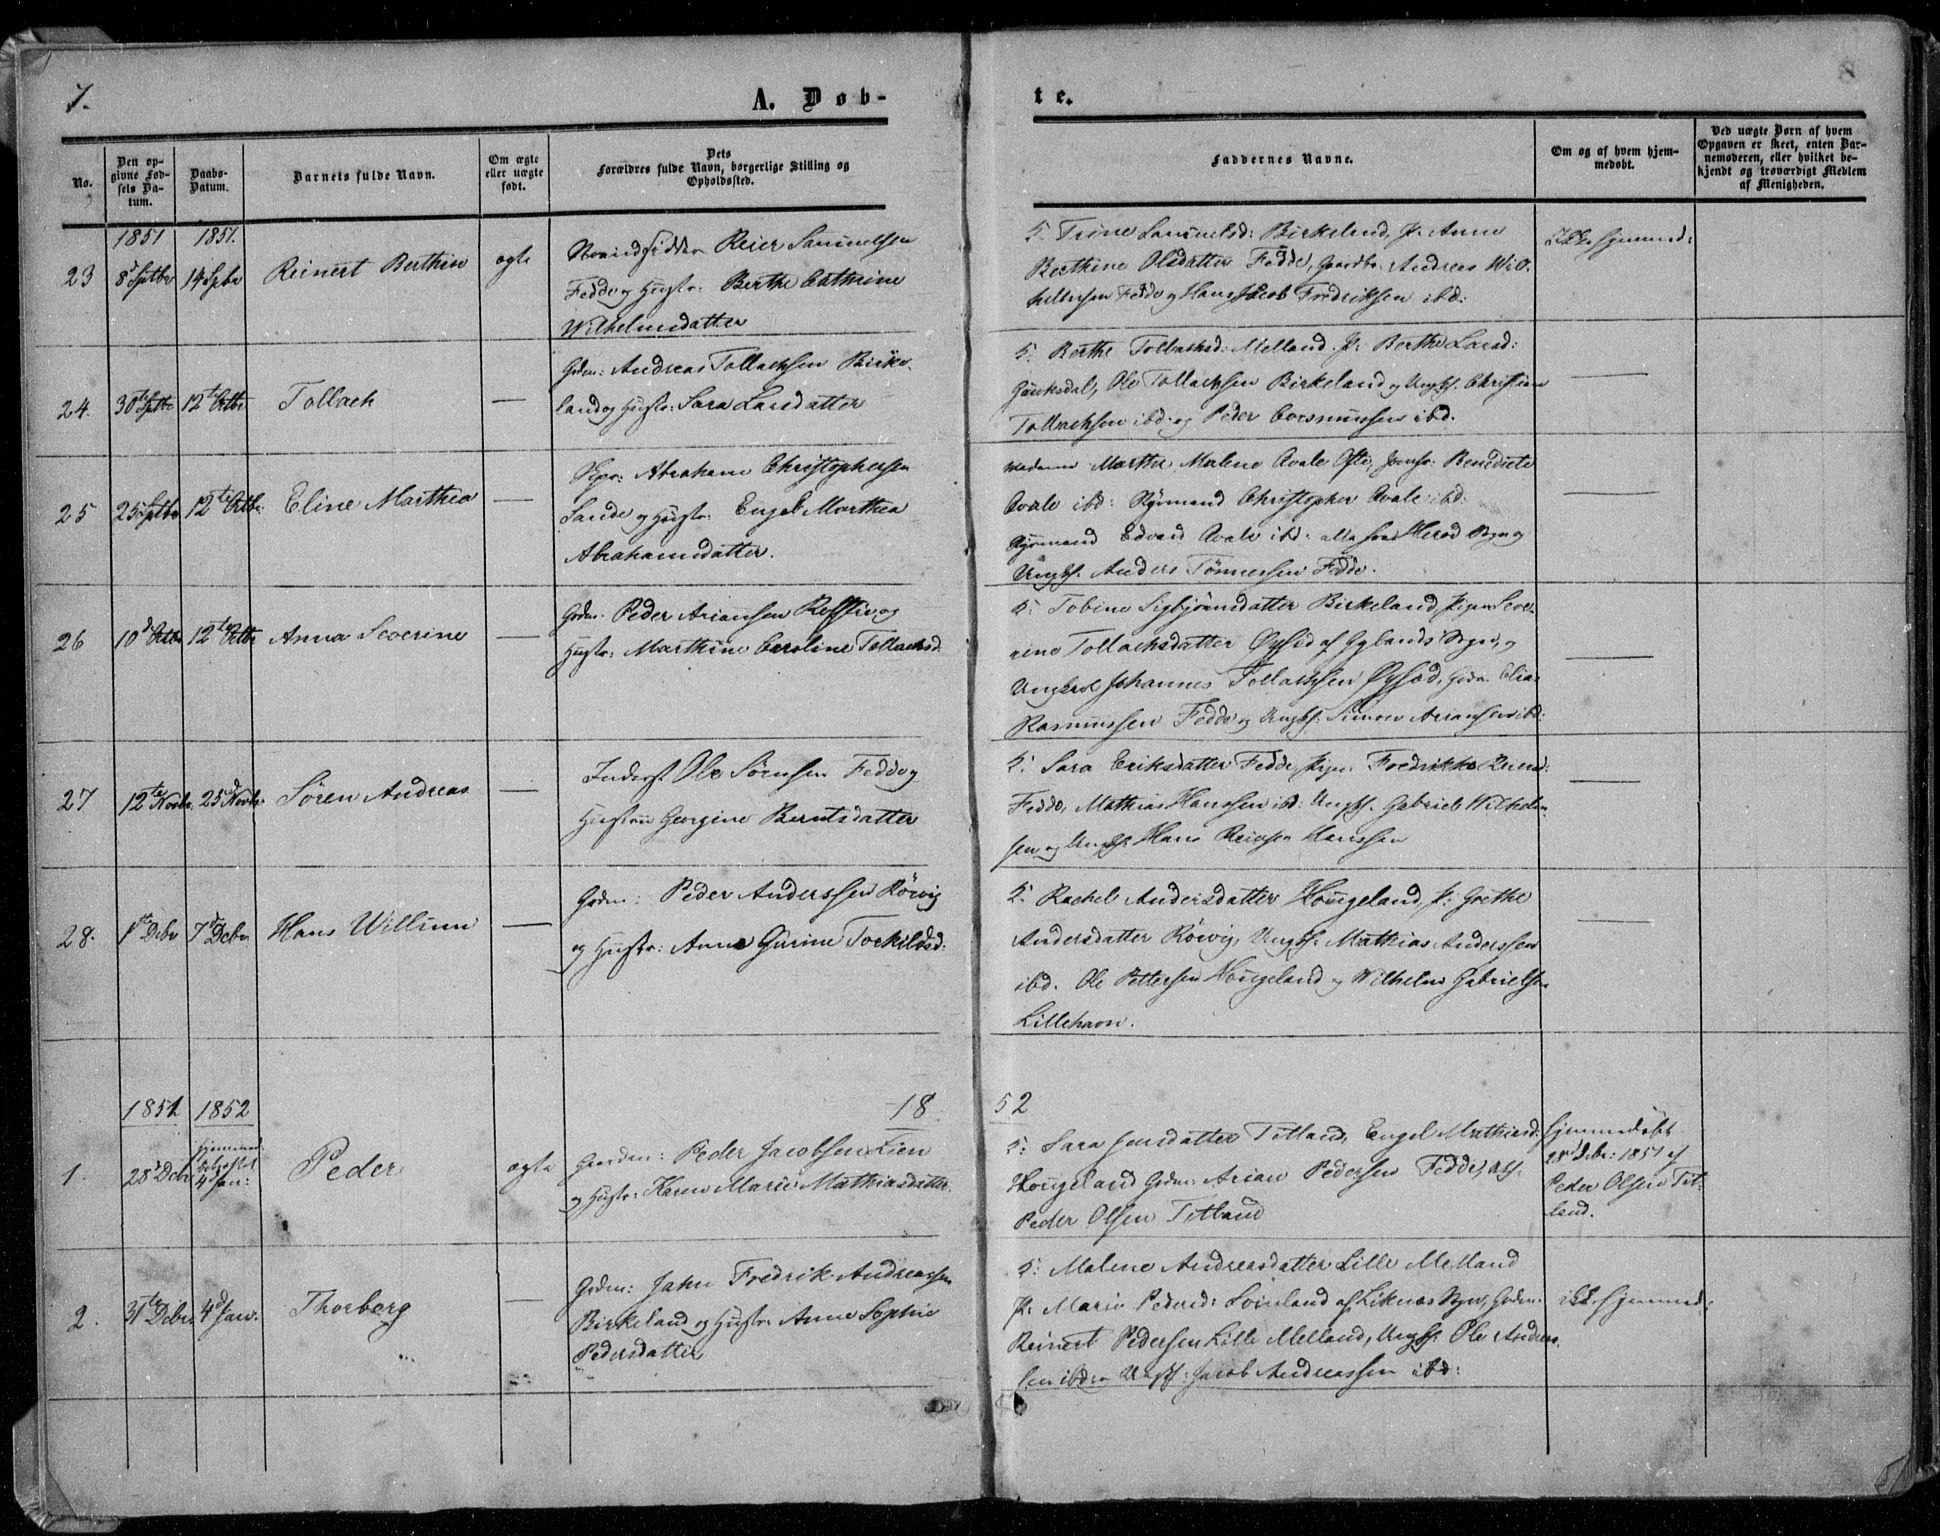 7.
8
A. Døb-
te.
No.
Den op-
givne Fød-
sels Da-
tum.
Daabs-
Datum.
Barnets fulde Navn.
Om ægte
eller uægte
født.
Dets
Forældres fulde Navn, borgerlige Stilling og
Opholdssted.
Faddernes Navne.
Om og af hvem hjem-
medøbt.
Ved uægte Børn af hvem
Opgaven er skeet, enten Bar-
nemoderen, eller hvilket be-
kjendt og troværdigt Medlem
af Menigheden.
1851 1851.
23 8d Septbr 14 Septbr Reinert Berthin ægte
Reier Samuelsen
Fedde og Hustr: Berthe Cathrine
Wilhelmsdatter
K. Trine Samuelsd: Birkeland, P. Anne
Berthine Olsdatter Fedde, Gaardbr. Andreas Wil-
helmsen Fedde og Hans Jacob Fredriksen ibd:
Ikke hjemmed:
24. 30te Septbr 12te Octbr Tollach —
Grdm: Andreas Tollachsen Birke-
land og Hustr: Sara Larsdatter
K: Berthe Tollachsd: Melland. P: Berthe Larsd:
Ole Tollachsen Birkeland og Ungk. Christian
Tollachsen ibd: og Peder ibd.
—
25 25 Septbr 12te Octbr: Eline Marthea —
Abraham Christophersen
Sande og Hustr. Engel Marthea
Abrahamsdatter.
Madame Marthe Malene Avale Jomfr: Benedicte
Avale ibd: Christopher Avale ibd.
Edvard Avale ibd: alle fra Herad Sogn og
Ungk. Anders Tønnessen Fedde.
—
26 10d Octbr 12te Octbr Anna Severine —
Grdm. Peder Ariansen Refstie og
Hustr: Marthine Caroline Tollachsd.
K: Tobine Sigbjørnsdatter Birkeland, Pigen Seve-
rine Tollachsdatter Øysæd af Gylands Sogn, og
Ungkarl Johannes Tollachsen Øysæd, Grdm. Elias
Rasmussen Fedde og Ungk. Simon Ariansen ibd:
—
27 12te Novbr. 25d Novbr. Søren Andreas —
Inderst Ole Sørensen Fedde og
Hustru Georgine Berntsdatter
K: Sara Eriksdatter Fedde Pigen Fredrikke
Fedde, Mathias Hanssen ibd: Ungk. Gabriel Wilhelm-
sen og Ungk. Hans Hanssen
—
28. 1ste Debr 7d Debr Hans Willum —
Grdm: Peder Anderssen Rørvig
og Hustr: Anne Gurine Torkildsd:
K. Rachel Andersdatter Hougeland, P: Grethe
Andersdatter Rørvig, Ungk. Mathias Anderssen
ibd. Ole Pettersen Hougeland og Wilhelm Gabrielsen
Lillehavn.
—
1851 1852
18 52
1. 28d Debr
4d Jan: Peder ægte
Grdm: Peder Jacobsen Lien
og Hustr: Karen Marie Mathiasdatter.
K: Sara Jensdatter Titland, Engel Mathiasd:
Hougeland Grdm: Arian Pedersen Fedde,
Peder Olsen Titland
Hjemmedøbt
28d Debr: 1851 af
Peder Olsen Tit-
land.
2. 31te Debr. 4d Janr. Thorborg —
Grdm: Jahn Fredrik Andreassen
Birkeland og Hustr. Anne Sophie
Pedersdatter
K: Malene Andreasdatter Lille Melland
P. Marie Pedersd: af Liknes Sogn, Grdm:
Reinert Pedersen Lille Melland, Ungk. Ole Andreas-
sen ibd: og Ungk: Jacob Andreassen ibd:
ikke hjemmed: